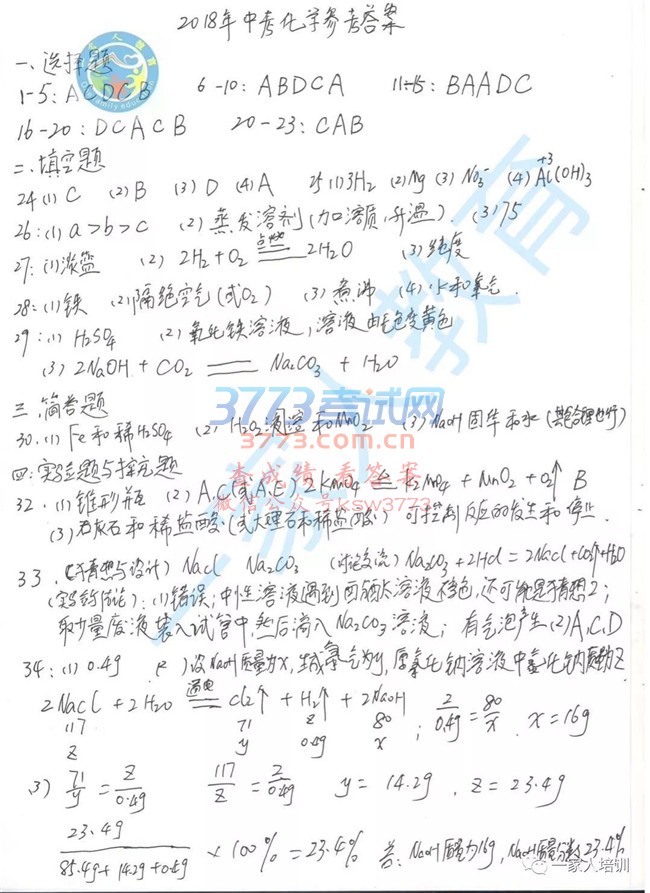 2018年中考化学参考答案
一、选择题
1-5: ACDCB 6-10: ABDCA 11-15: BAADC
16-20: DCACB 20-23: CAB
二、填空题
24 (1) C (2) B (3) D (4) A 25 (1) 3H₂ (2) Mg (3) NO₃⁻ (4) Al(OH)₃ +3
26: (1) a>b>c (2) 蒸发溶剂(加溶质,升温). (3) 75
27: (1) 淡蓝 (2) 2H₂+O₂ 点燃 2H₂O (3) 纯度
28: (1) 铁 (2) 隔绝空气(或O₂) (3) 煮沸 (4) 水和氧气
29: (1) H₂SO₄ (2) 氧化铁溶液,溶液由无色变黄色
(3) 2NaOH + CO₂ = Na₂CO₃ + H₂O
3773考试网
三.简答题
30. (1) Fe和稀H₂SO₄ (2) H₂O₂溶液和MnO₂ (3) NaOH固体和水(其它合理也行)
3773.com.cn
四:实验题与探究题
查成绩看答案
32. (1) 锥形瓶 (2) A.C(或A.E) 2KMnO₄ = K₂MnO₄ + MnO₂ + O₂↑ B
微信公众号ksw3773
(3) 石灰石和稀盐酸(或大理石和稀盐酸) 可控制反应的发生和停止.
33. (猜想与设计) NaCl Na₂CO₃ (讨论交流) Na₂CO₃+2HCl=2NaCl+CO₂↑+H₂O
(实验结论): (1) 错误; 中性溶液遇到酚酞溶液褪色,还可能是猜想2;
取少量废液装入试管中,然后滴入Na₂CO₃溶液; 有气泡产生 (2) A,C,D
34: (1) 0.4g 设NaOH质量为x,生成氯气为y,原氯化钠溶液中氯化钠质量为z
2NaCl + 2H₂O 通电 Cl₂↑ + H₂↑ + 2NaOH
117 71 2 80 ; 2/0.4g = 80/x x=16g
z y 0.4g x
(3) 71/y = 2/0.4g 117/z = 2/0.4g y=14.2g . z=23.4g
23.4g
85.4g+14.2g+0.4g ×100%=23.4% 答: NaOH质量为16g, NaOH质量分数23.4%
一家人培训
一家人教育